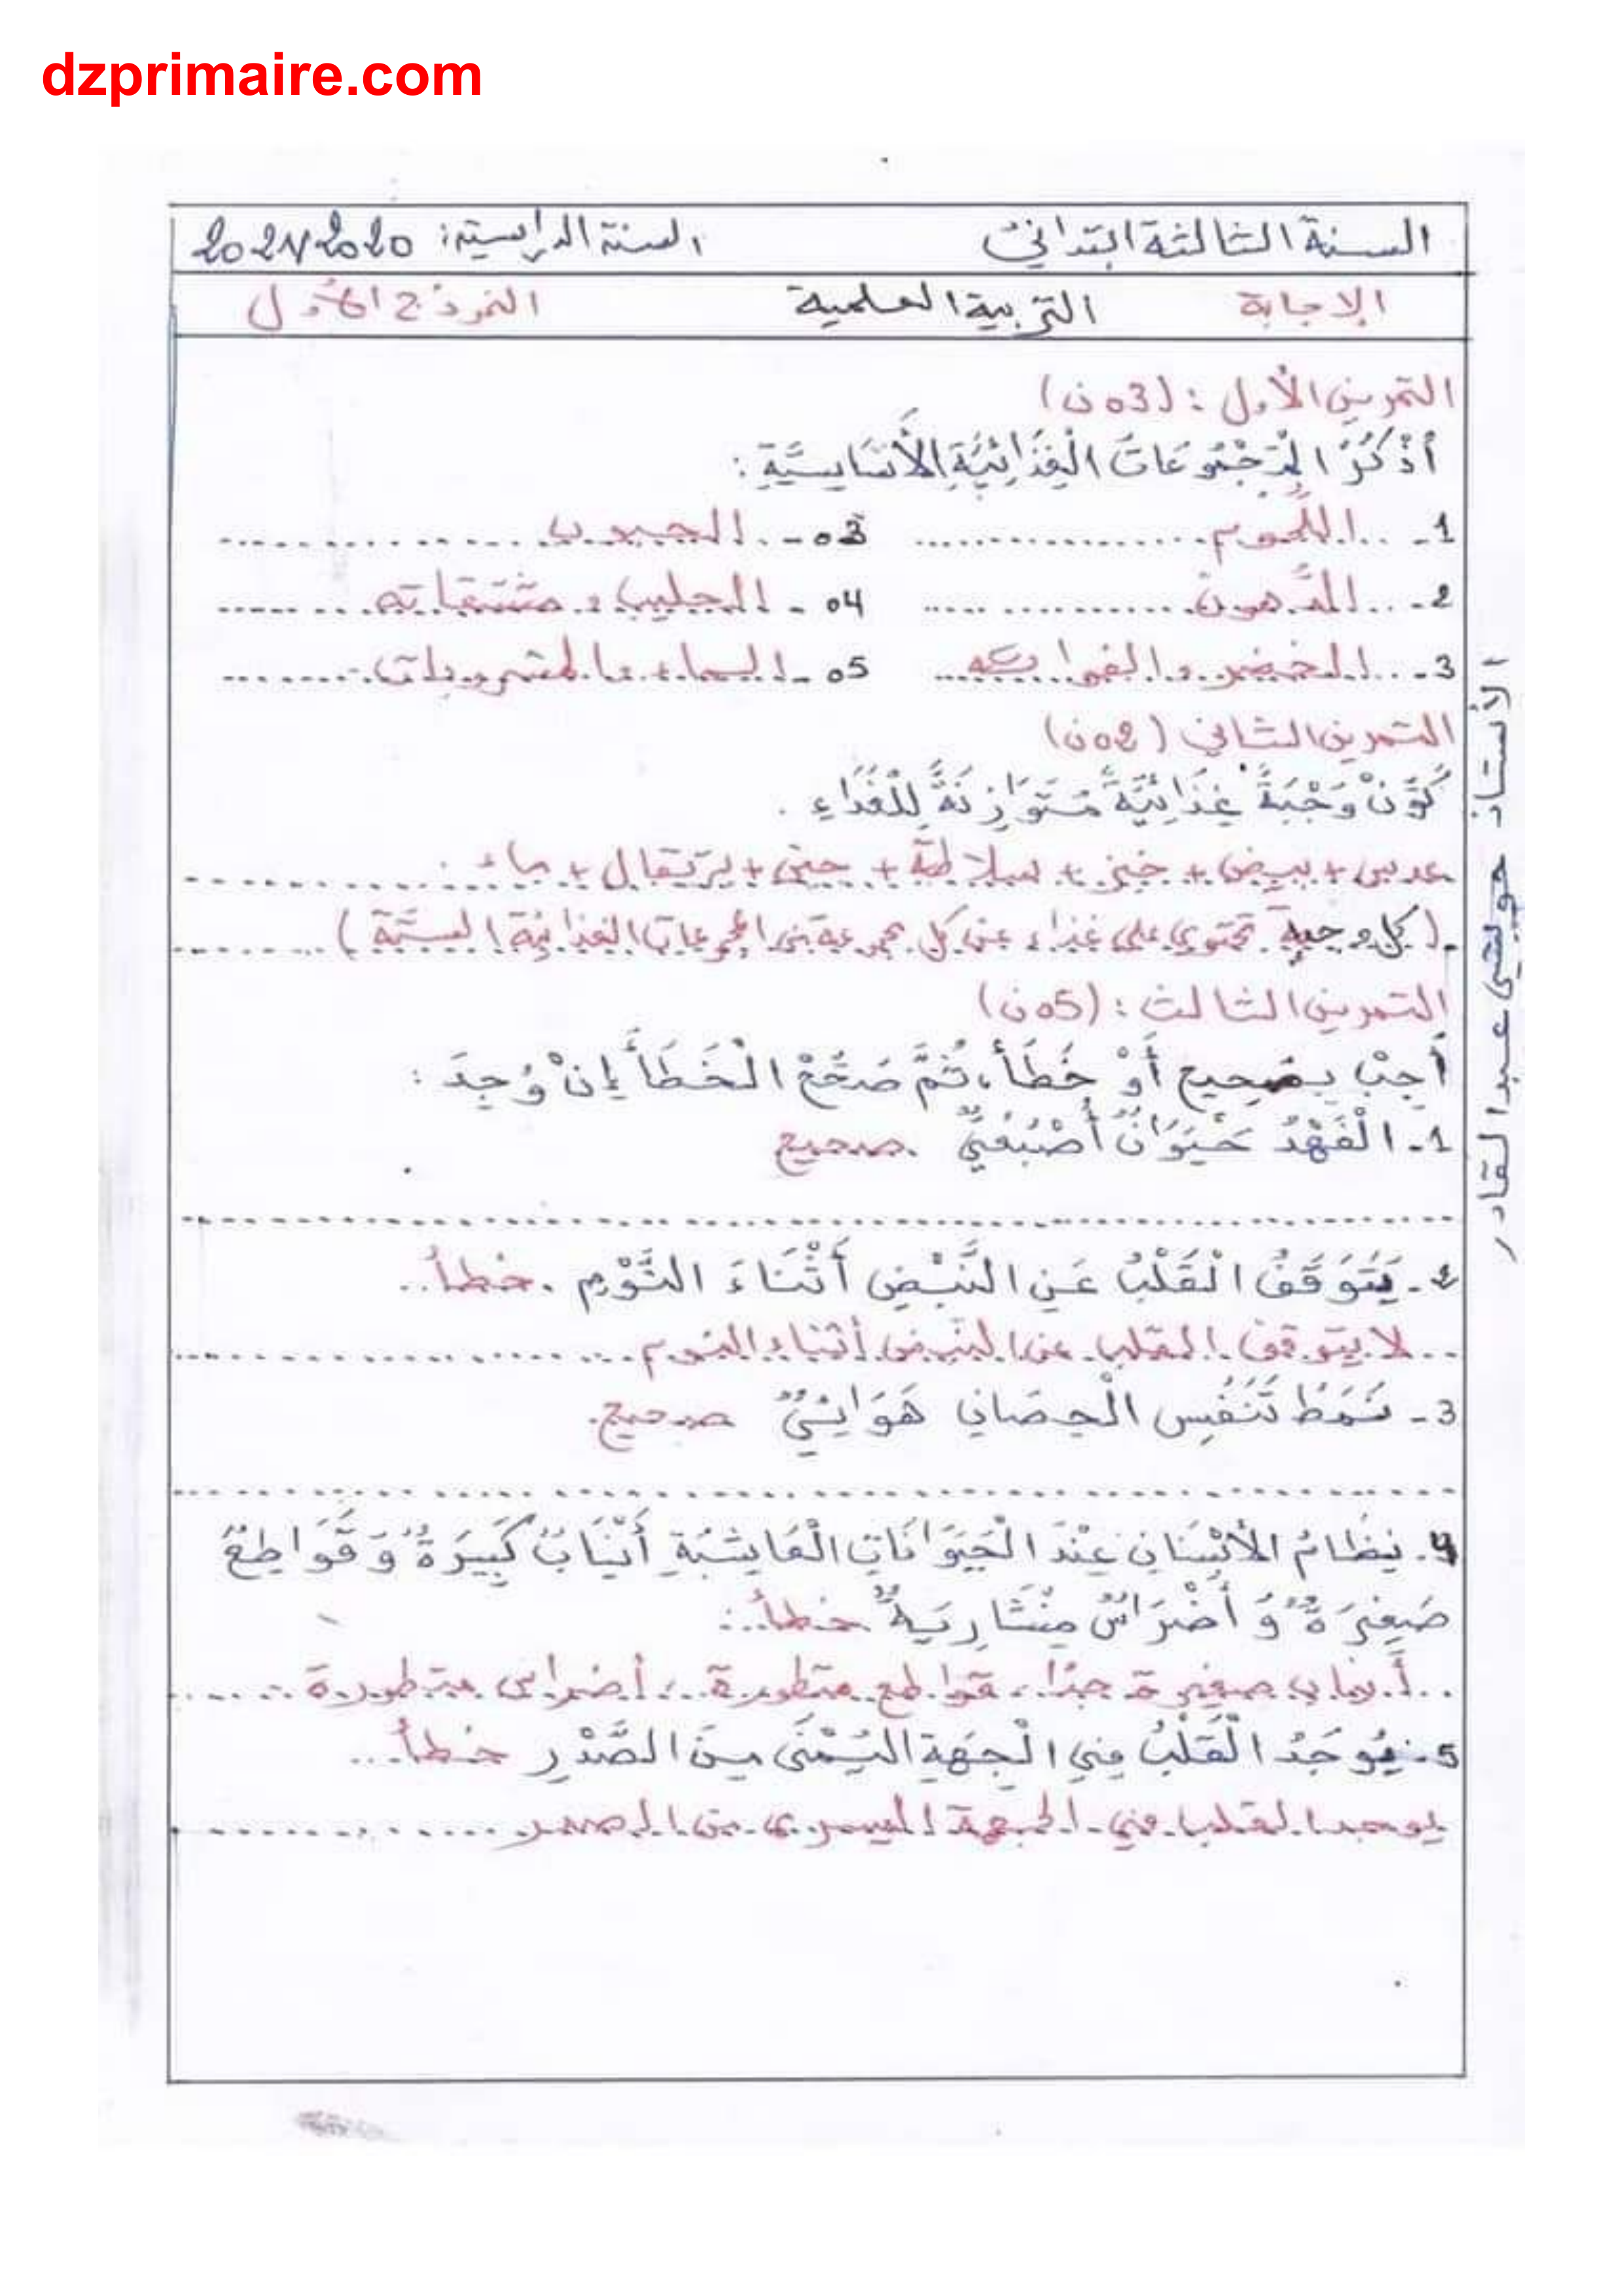 dzprimaire.com
السنة الثالثة ابتدائي السنة الدراسية: 2020/2021
الإجابة التربية العلمية النموذج الأول
التمرين الأول: (03ن)
أُذْكُرُ الْمَجْمُوعَاتِ الْغِذَائِيَّةِ الْأَسَاسِيَّةِ:
1- اللّحوم 03- الحبوب
2- الدّهون 04- الحليب و مشتقاته
3- الخضر و الفواكه 05- الماء و المشروبات
التمرين الثاني (02ن)
كَوِّنْ وَجْبَةً غِذَائِيَّةً مُتَوَازِنَةً لِلْغَدَاءِ.
عدس + بيض + خبز + سلاطة + جبن + برتقال + ماء.
(كل وجبة تحتوي على غذاء من كل مجموعة من المجموعات الغذائية الستّة)
التمرين الثالث: (05ن)
أَجِبْ بِصَحِيح أَوْ خَطَأ، ثُمَّ صَحِّحْ الْخَطَأَ إِنْ وُجِدَ:
1- الْفَهْدُ حَيَوَانٌ أُصْبُعِيٌّ. صحيح
2- يَتَوَقَّفُ الْقَلْبُ عَنِ النَّبْضِ أَثْنَاءَ النَّوْمِ. خطأ..
لا يتوقف القلب عن النبض أثناء النوم
3- نَمَطُ تَنَفُّسِ الْحِصَانِ هَوَائِيٌّ صحيح.
4- نِظَامُ الْأَسْنَانِ عِنْدَ الْحَيَوَانَاتِ الْعَاشِبَةِ أَنْيَابٌ كَبِيرَةٌ وَ قَوَاطِعٌ
صَغِيرَةٌ وَ أَضْرَاسٌ مِنْشَارِيَةٌ خطأ..:
أنياب صغيرة جدّا، قواطع متطورة، أضراس متطورة
5- يُوجَدُ الْقَلْبُ فِي الْجِهَةِ الْيُمْنَى مِنَ الصَّدْرِ خطأ...
يوجد القلب في الجهة اليسرى من الصدر
الأستاذ عبد القادر